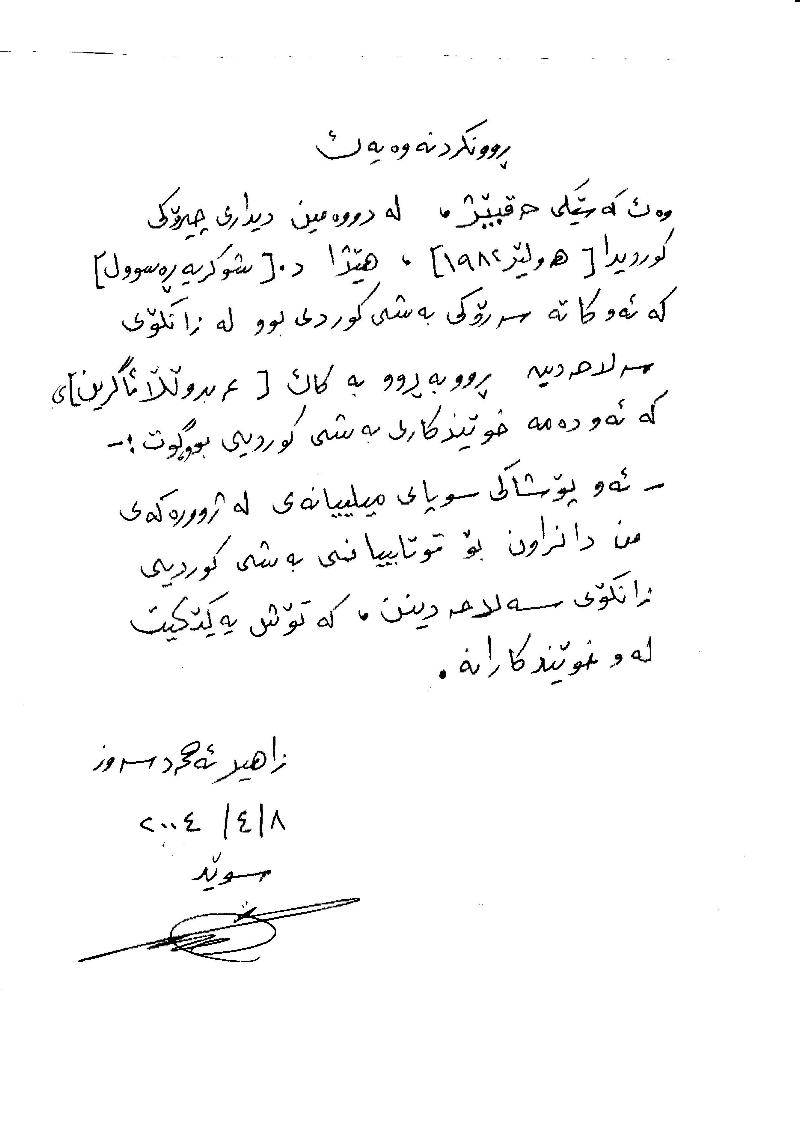 ڕوونکردنەوەیەک
وەک کەسێکی حەقبێژ، لە دووەمین دیداری چیرۆکی
کوردیدا [هەولێر ١٩٨٢]، هێژا د. [شوکریە ڕەسوول]
کە ئەو کاتە سەرۆکی بەشی کوردی بوو لە زانکۆی
سەلاحەدین ڕووبەڕوو بە کاک [عەبدوڵڵا ئاگرین]ی
کە ئەو دەمە خوێندکاری بەشی کوردیی بوو گوت :-
- ئەو پۆشاکی سوپای میللییانەی لە ژوورەکەی
من دانراون بۆ قوتابییانی بەشی کوردیی
زانکۆی سەلاحەدینن، کە تۆش یەکێکیت
لەو خوێندکارانە.
زاهیر ئەحمەد سەوز
٢٠٠٤ /٤/٨
سوێد